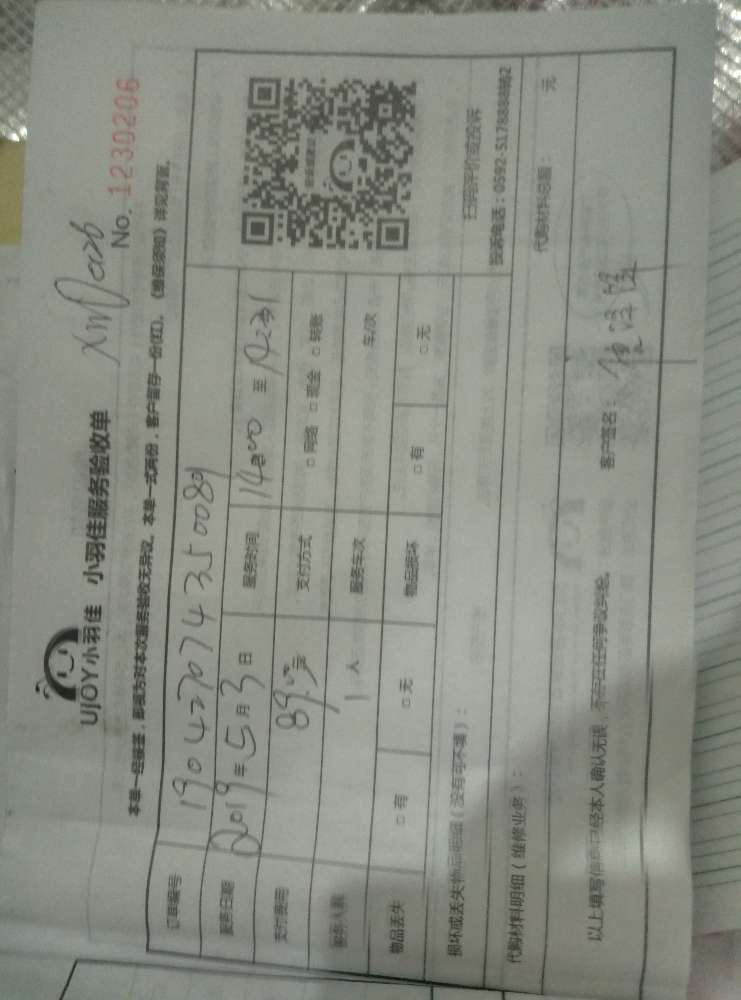 UJOY小羽佳 小羽佳服务验收单
No. 1230206
本单一经接签，即视为对本次服务验收无异议。本单一式两份，客户留存一份(红)，《维保须知》详见背面。
订单编号 190427074350089
服务日期 2019年5月3日 服务时间 14:00 至
支付费用 89元 支付方式 □网络 □现金 □转账
服务人数 1人 服务车次 车/次
物品丢失 □有 □无 物品损坏 □有 □无
扫码评价或投诉
投诉电话：0592-5176888转862
损坏或丢失物品明细（没有可不填）：
代购材料明细（维修业务）： 代购材料总额： 元
以上填写信息已经本人确认无误，不存在任何争议纠纷。 客户签名：